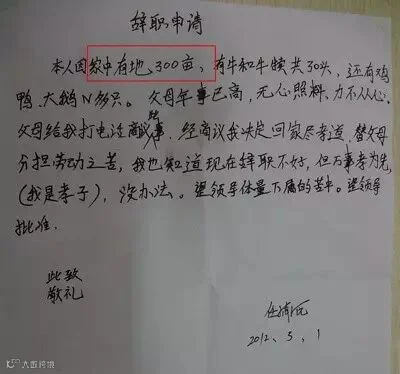 辞职申请
本人因家中有地300亩、有牛和牛犊共30头,还有鸡
鸭、大鹅N多只。父母年事已高,无心照料、力不从心。
父母给我打电话商议事,经商议我决定回家尽孝道,替父母
分担劳动之苦,我也知道现在辞职不好,但万事孝为先,
(我是孝子),没办法。望领导体量下属的苦中。望领导
批准.
此致
敬礼
2012、5、1
大数跨境